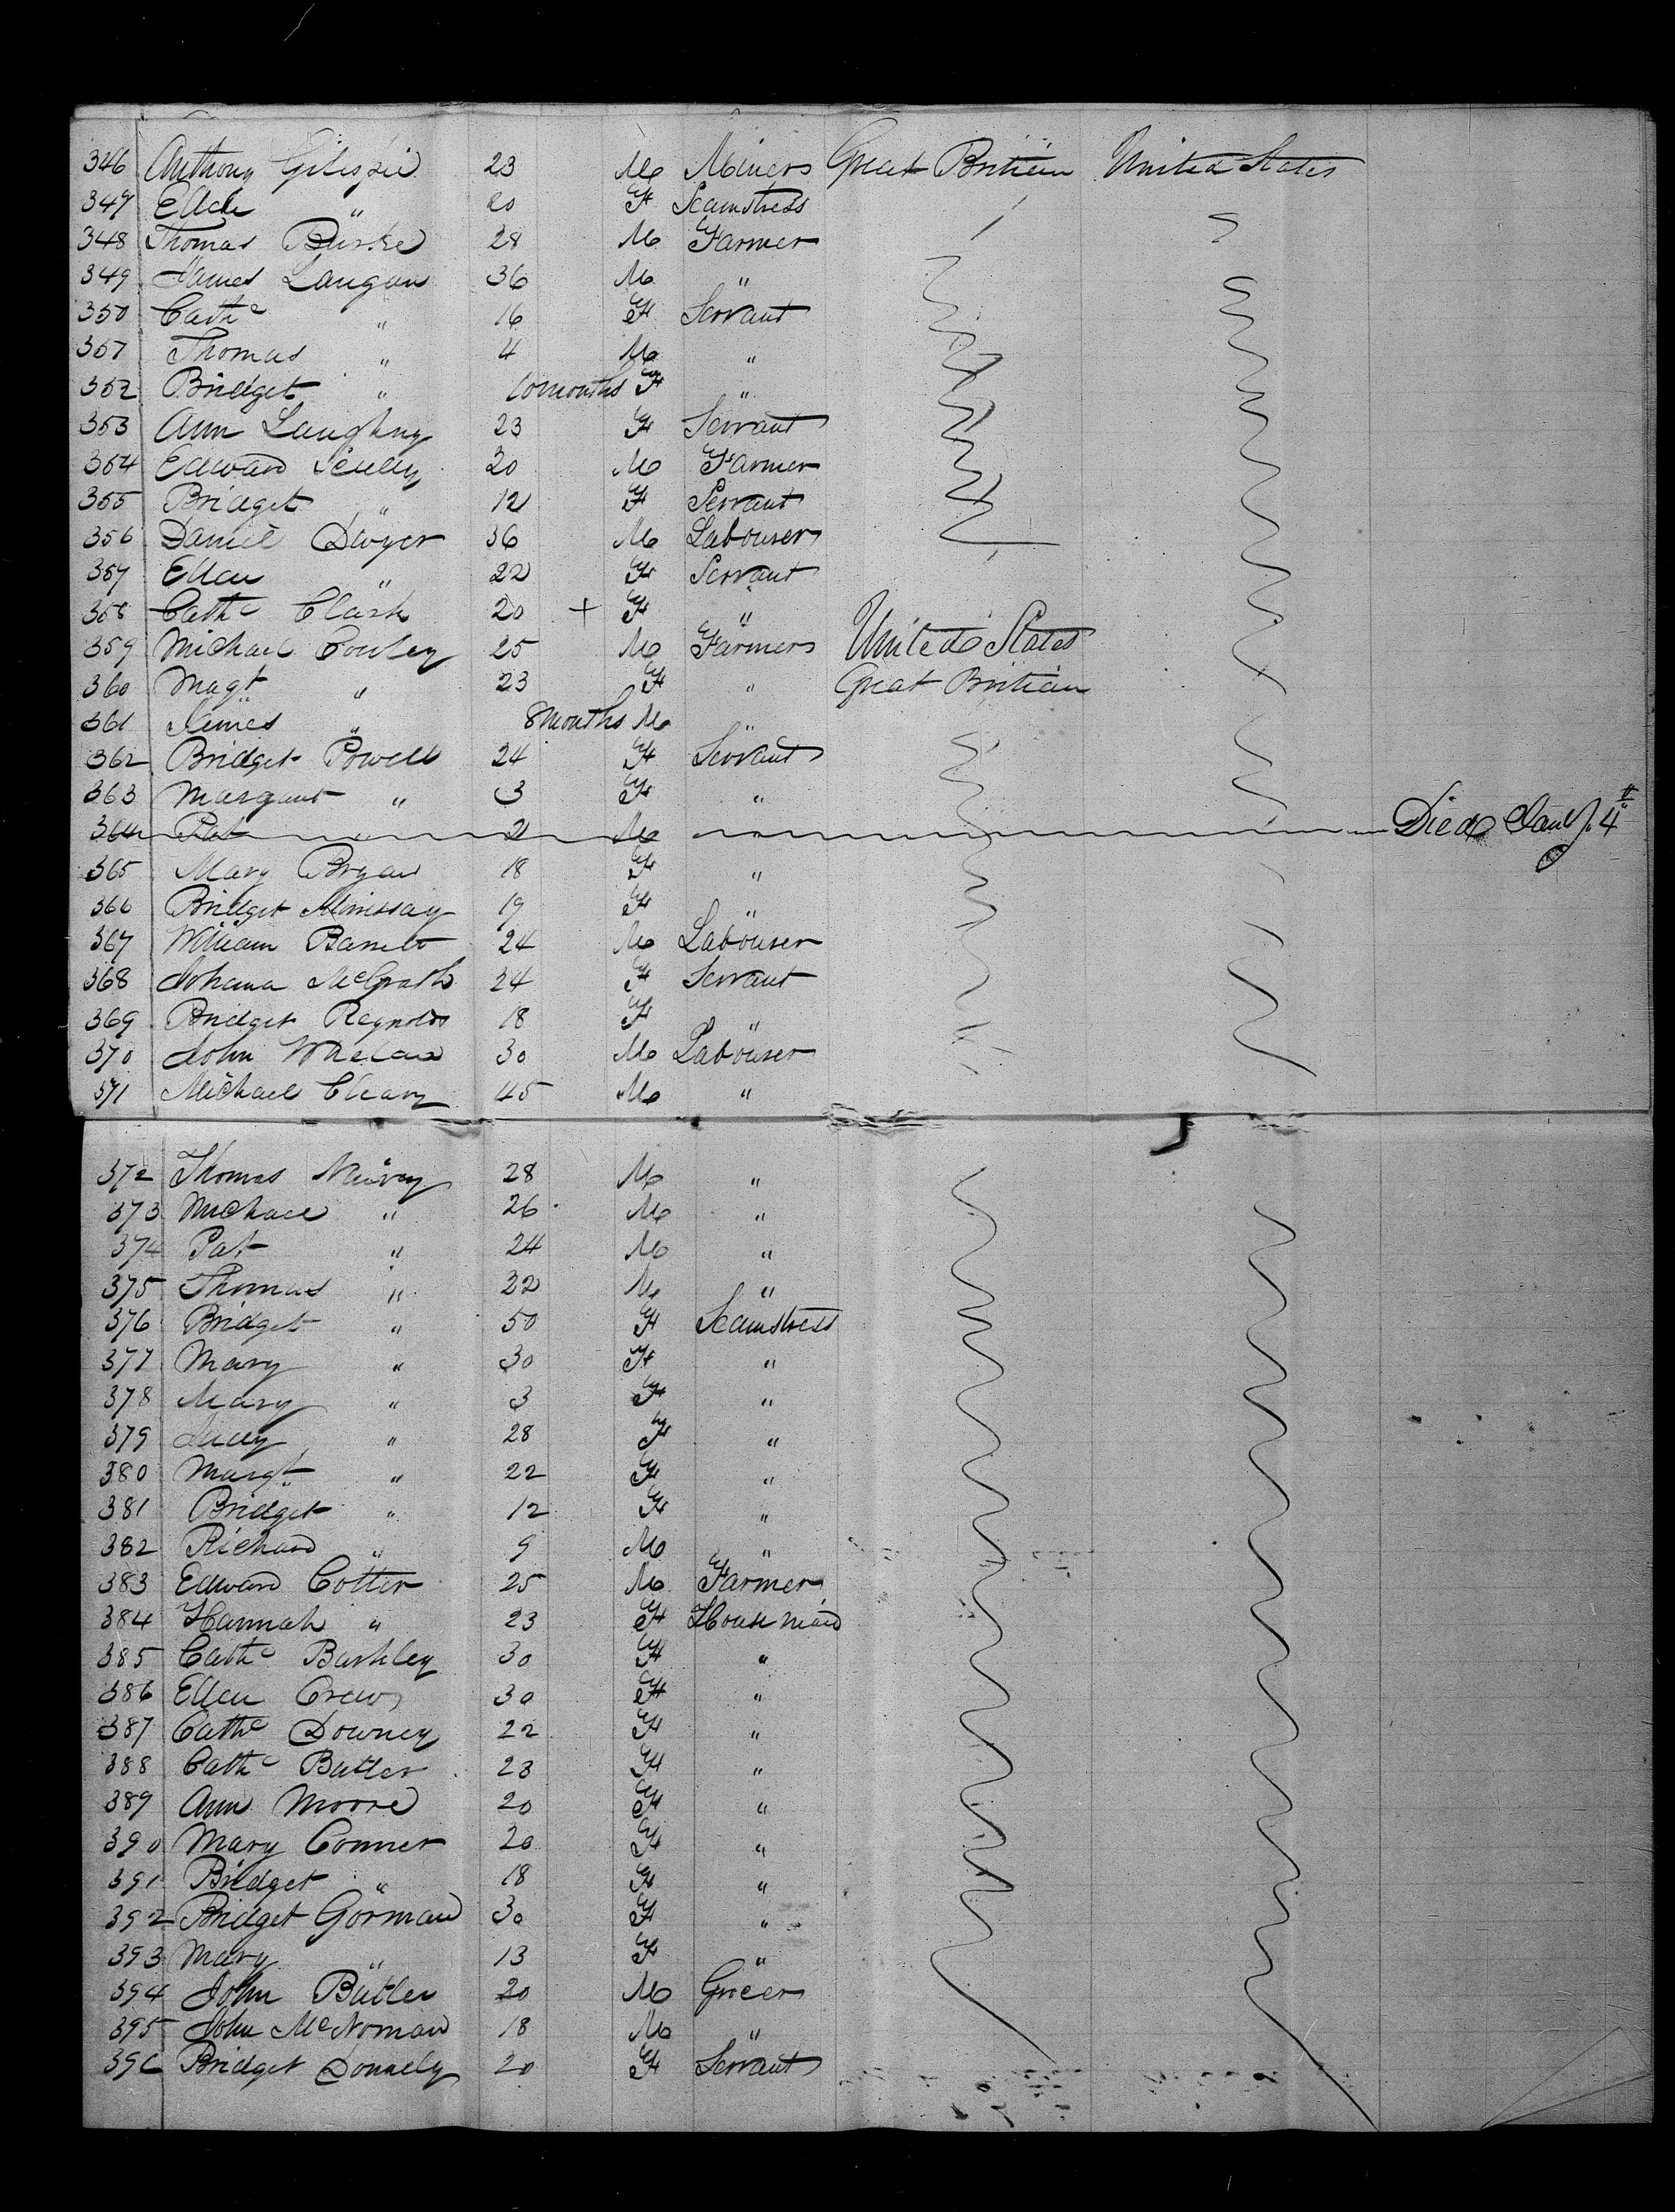 346 Anthony Gilespie 23 M Miners Great Britian United States
347 Ellen " 20 F Seamstress
348 Thomas Burke 28 M Farmer
349 James Langan 36 M "
350 Cathe " 16 F Servant
357 Thomas " 4 M "
352 Bridget " 10 months F "
353 Ann Laughny 23 F Servant
354 Edward Scully 30 M Farmer
355 Bridget " 12 F Servant
356 Daniel Dwyer 36 M Labourer
357 Ellen " 22 F Servant
358 Cathe Clark 20 + F "
359 Michael Conley 25 M Farmers United States
360 Magt " 23 F " Great Britian
361 James " 8 months M "
362 Bridget Powell 24 F Servant
363 Margaret " 3 F "
364 Pat " 2 M " Died Jany. 4th
365 Mary Bryan 18 F "
366 Bridget 19 F "
367 William Barrett 24 M Labourer
368 Johana McGrath 24 F Servant
369 Bridget Reynolds 18 F "
370 John Whelan 30 M Labourer
371 Michael Cleary 45 M "
372 Thomas 28 M "
373 Michael " 26 M "
374 Pat " 24 M "
375 Thomas " 22 M "
376 Bridget " 50 F Seamstress
377 Mary " 30 F "
378 Mary " 3 F "
379 " 28 F "
380 Margt " 22 F "
381 Bridget " 12 F "
382 Richard " 9 M "
383 Edward Cotter 25 M Farmer
384 Hannah " 23 F House maid
385 Cathe Barkley 30 F "
386 Ellen Crew 30 F "
387 Cathe Downey 22 F "
388 Cathe Butler 23 F "
389 Ann Moore 20 F "
390 Mary Conner 20 F "
391 Bridget " 18 F "
392 Bridget Gorman 30 F "
393 Mary " 13 F "
394 John Butler 20 M Grocer
395 John McNoman 18 M "
396 Bridget Donnely 20 F Servant